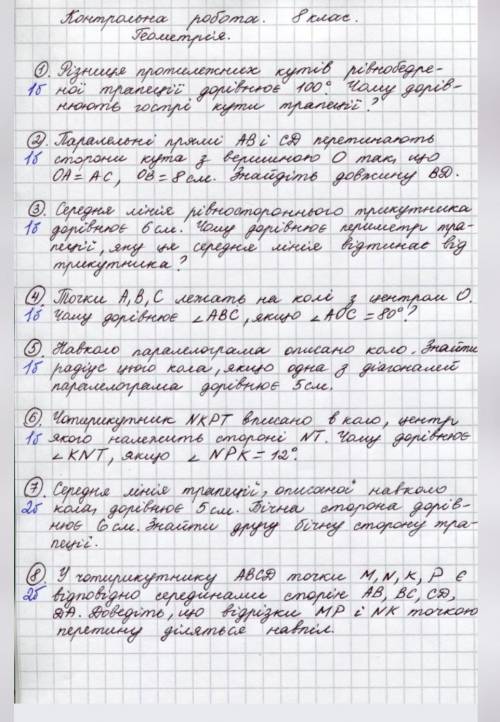 Контрольна робота. 8 клас.
Геометрія.
① Різниця протилежних кутів рівнобедре-
1б ної трапеції дорівнює 100°. Чому дорів-
нюють гострі кути трапеції?
② Паралельні прямі AB і CD перетинають
1б сторони кута з вершиною O так, що
OA = AC, OB = 8 см. Знайдіть довжину BD.
③ Середня лінія рівностороннього трикутника
1б дорівнює 6 см. Чому дорівнює периметр тра-
пеції, яку ця середня лінія відтинає від
трикутника?
④ Точки A, B, C лежать на колі з центром O.
1б Чому дорівнює ∠ABC, якщо ∠AOC = 80°?
⑤ Навколо паралелограма описано коло. Знайти
1б радіус цього кола, якщо одна з діагоналей
паралелограма дорівнює 5 см.
⑥ Чотирикутник NKPT вписано в коло, центр
1б якого належить стороні NT. Чому дорівнює
∠KNT, якщо ∠NPK = 12°.
⑦ Середня лінія трапеції, описаної навколо
2б кола, дорівнює 5 см. Бічна сторона дорів-
нює 6 см. Знайти другу бічну сторону тра-
пеції.
⑧ У чотирикутнику ABCD точки M, N, K, P є
2б відповідно серединами сторін AB, BC, CD,
DA. Доведіть, що відрізки MP і NK точкою
перетину діляться навпіл.